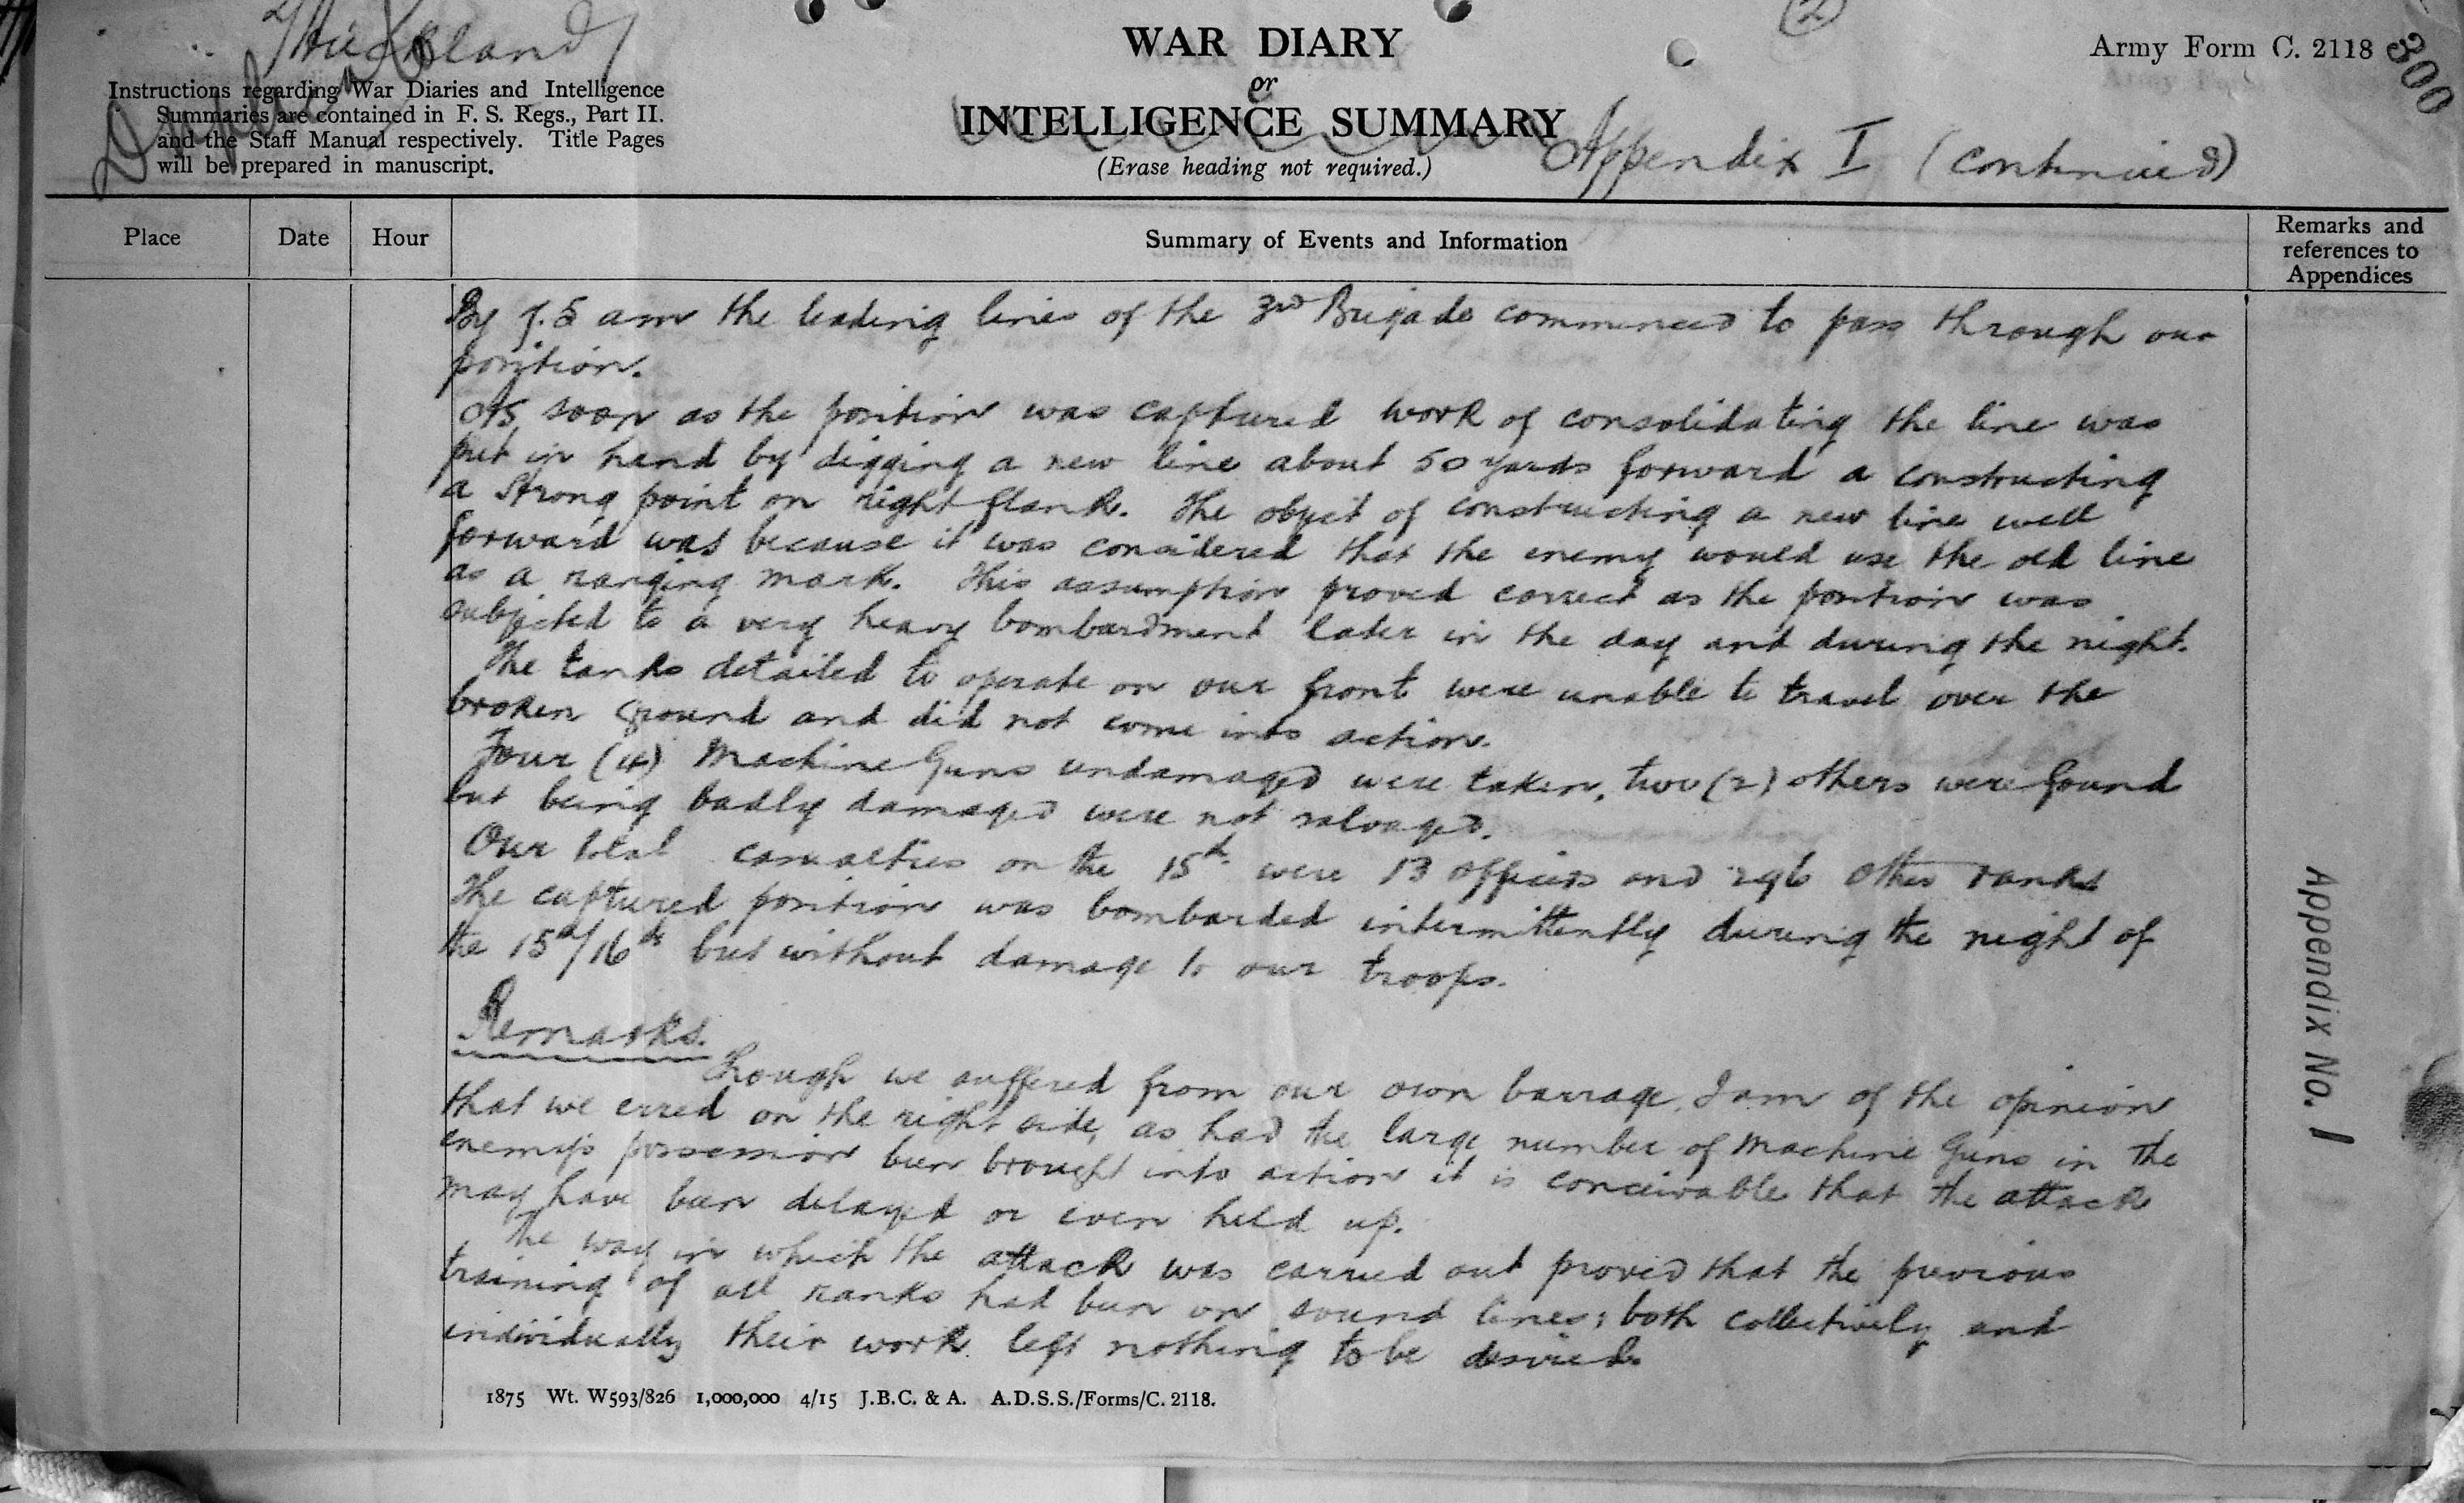 2/Auckland
Duplicate
(2)
300
WAR DIARY
or
INTELLIGENCE SUMMARY
(Erase heading not required.)
Army Form C. 2118
Instructions regarding War Diaries and Intelligence
Summaries are contained in F. S. Regs., Part II.
and the Staff Manual respectively. Title Pages
will be prepared in manuscript.
Appendix I (continued)
Place Date Hour Summary of Events and Information Remarks and
references to
Appendices
By 7.5 am the leading lines of the 3rd Brigade commenced to pass through our
position.
As soon as the position was captured work of consolidating the line was
put in hand by digging a new line about 50 yards forward a constructing
a strong point on right flank. The object of constructing a new line well
forward was because it was considered that the enemy would use the old line
as a ranging mark. This assumption proved correct as the position was
subjected to a very heavy bombardment later in the day and during the night.
The tanks detailed to operate on our front were unable to travel over the
broken ground and did not come into action.
Four (4) Machine Guns undamaged were taken, two (2) others were found
but being badly damaged were not salvaged.
Our total casualties on the 15th were 13 officers and 296 other ranks
The captured position was bombarded intermittently during the night of
the 15th/16th but without damage to our troops.
Remarks.
Though we suffered from our own barrage, I am of the opinion
that we erred on the right side, as had the large number of Machine Guns in the
enemy's possession been brought into action it is conceivable that the attack
may have been delayed or even held up.
The way in which the attack was carried out proved that the previous
training of all ranks had been on sound lines; both collectively and
individually their work left nothing to be desired.
Appendix No. 1
1875 Wt. W593/826 1,000,000 4/15 J.B.C. & A. A.D.S.S./Forms/C. 2118.